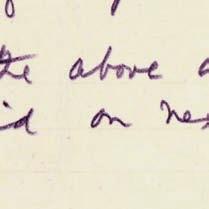 the above a
id on ne